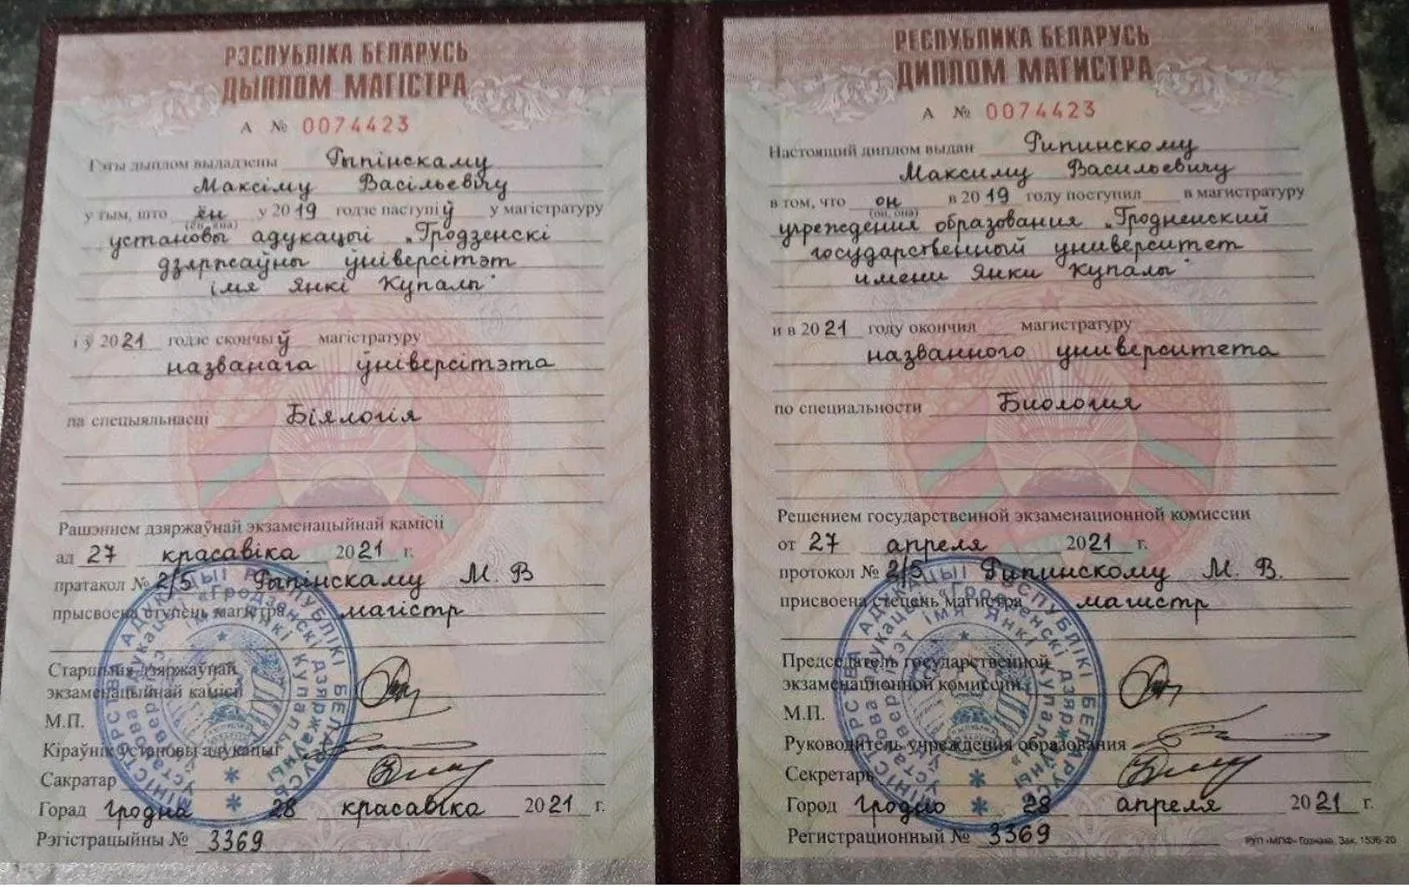 РЭСПУБЛІКА БЕЛАРУСЬ
ДЫПЛОМ МАГІСТРА
А № 0074423
Гэты дыплом выдадзены Рыпінскаму
Максіму Васільевічу
у тым, што ён у 2019 годзе паступіў у магістратуру
(ён, яна)
установы адукацыі „Гродзенскі
дзяржаўны ўніверсітэт
імя Янкі Купалы"
і ў 2021 годзе скончыў магістратуру
названага ўніверсітэта
па спецыяльнасці Біялогія
Рашэннем дзяржаўнай экзаменацыйнай камісіі
ад 27 красавіка 2021 г.
пратакол № 2/5 Рыпінскаму М. В
прысвоена ступень магістра магістр
Старшыня дзяржаўнай
экзаменацыйнай камісіі
М.П.
Кіраўнік установы адукацыі
Сакратар
Горад Гродна 28 красавіка 2021 г.
Рэгістрацыйны № 3369
РЕСПУБЛИКА БЕЛАРУСЬ
ДИПЛОМ МАГИСТРА
А № 0074423
Настоящий диплом выдан Рипинскому
Максиму Васильевичу
в том, что он в 2019 году поступил в магистратуру
(он, она)
учреждения образования „Гродненский
государственный университет
имени Янки Купалы"
и в 2021 году окончил магистратуру
названного университета
по специальности Биология
Решением государственной экзаменационной комиссии
от 27 апреля 2021 г.
протокол № 2/5 Рипинскому М. В.
присвоена степень магистра магистр
Председатель государственной
экзаменационной комиссии
М.П.
Руководитель учреждения образования
Секретарь
Город Гродно 28 апреля 2021 г.
Регистрационный № 3369
РУП «МПФ» Гознака. Зак. 1536-20